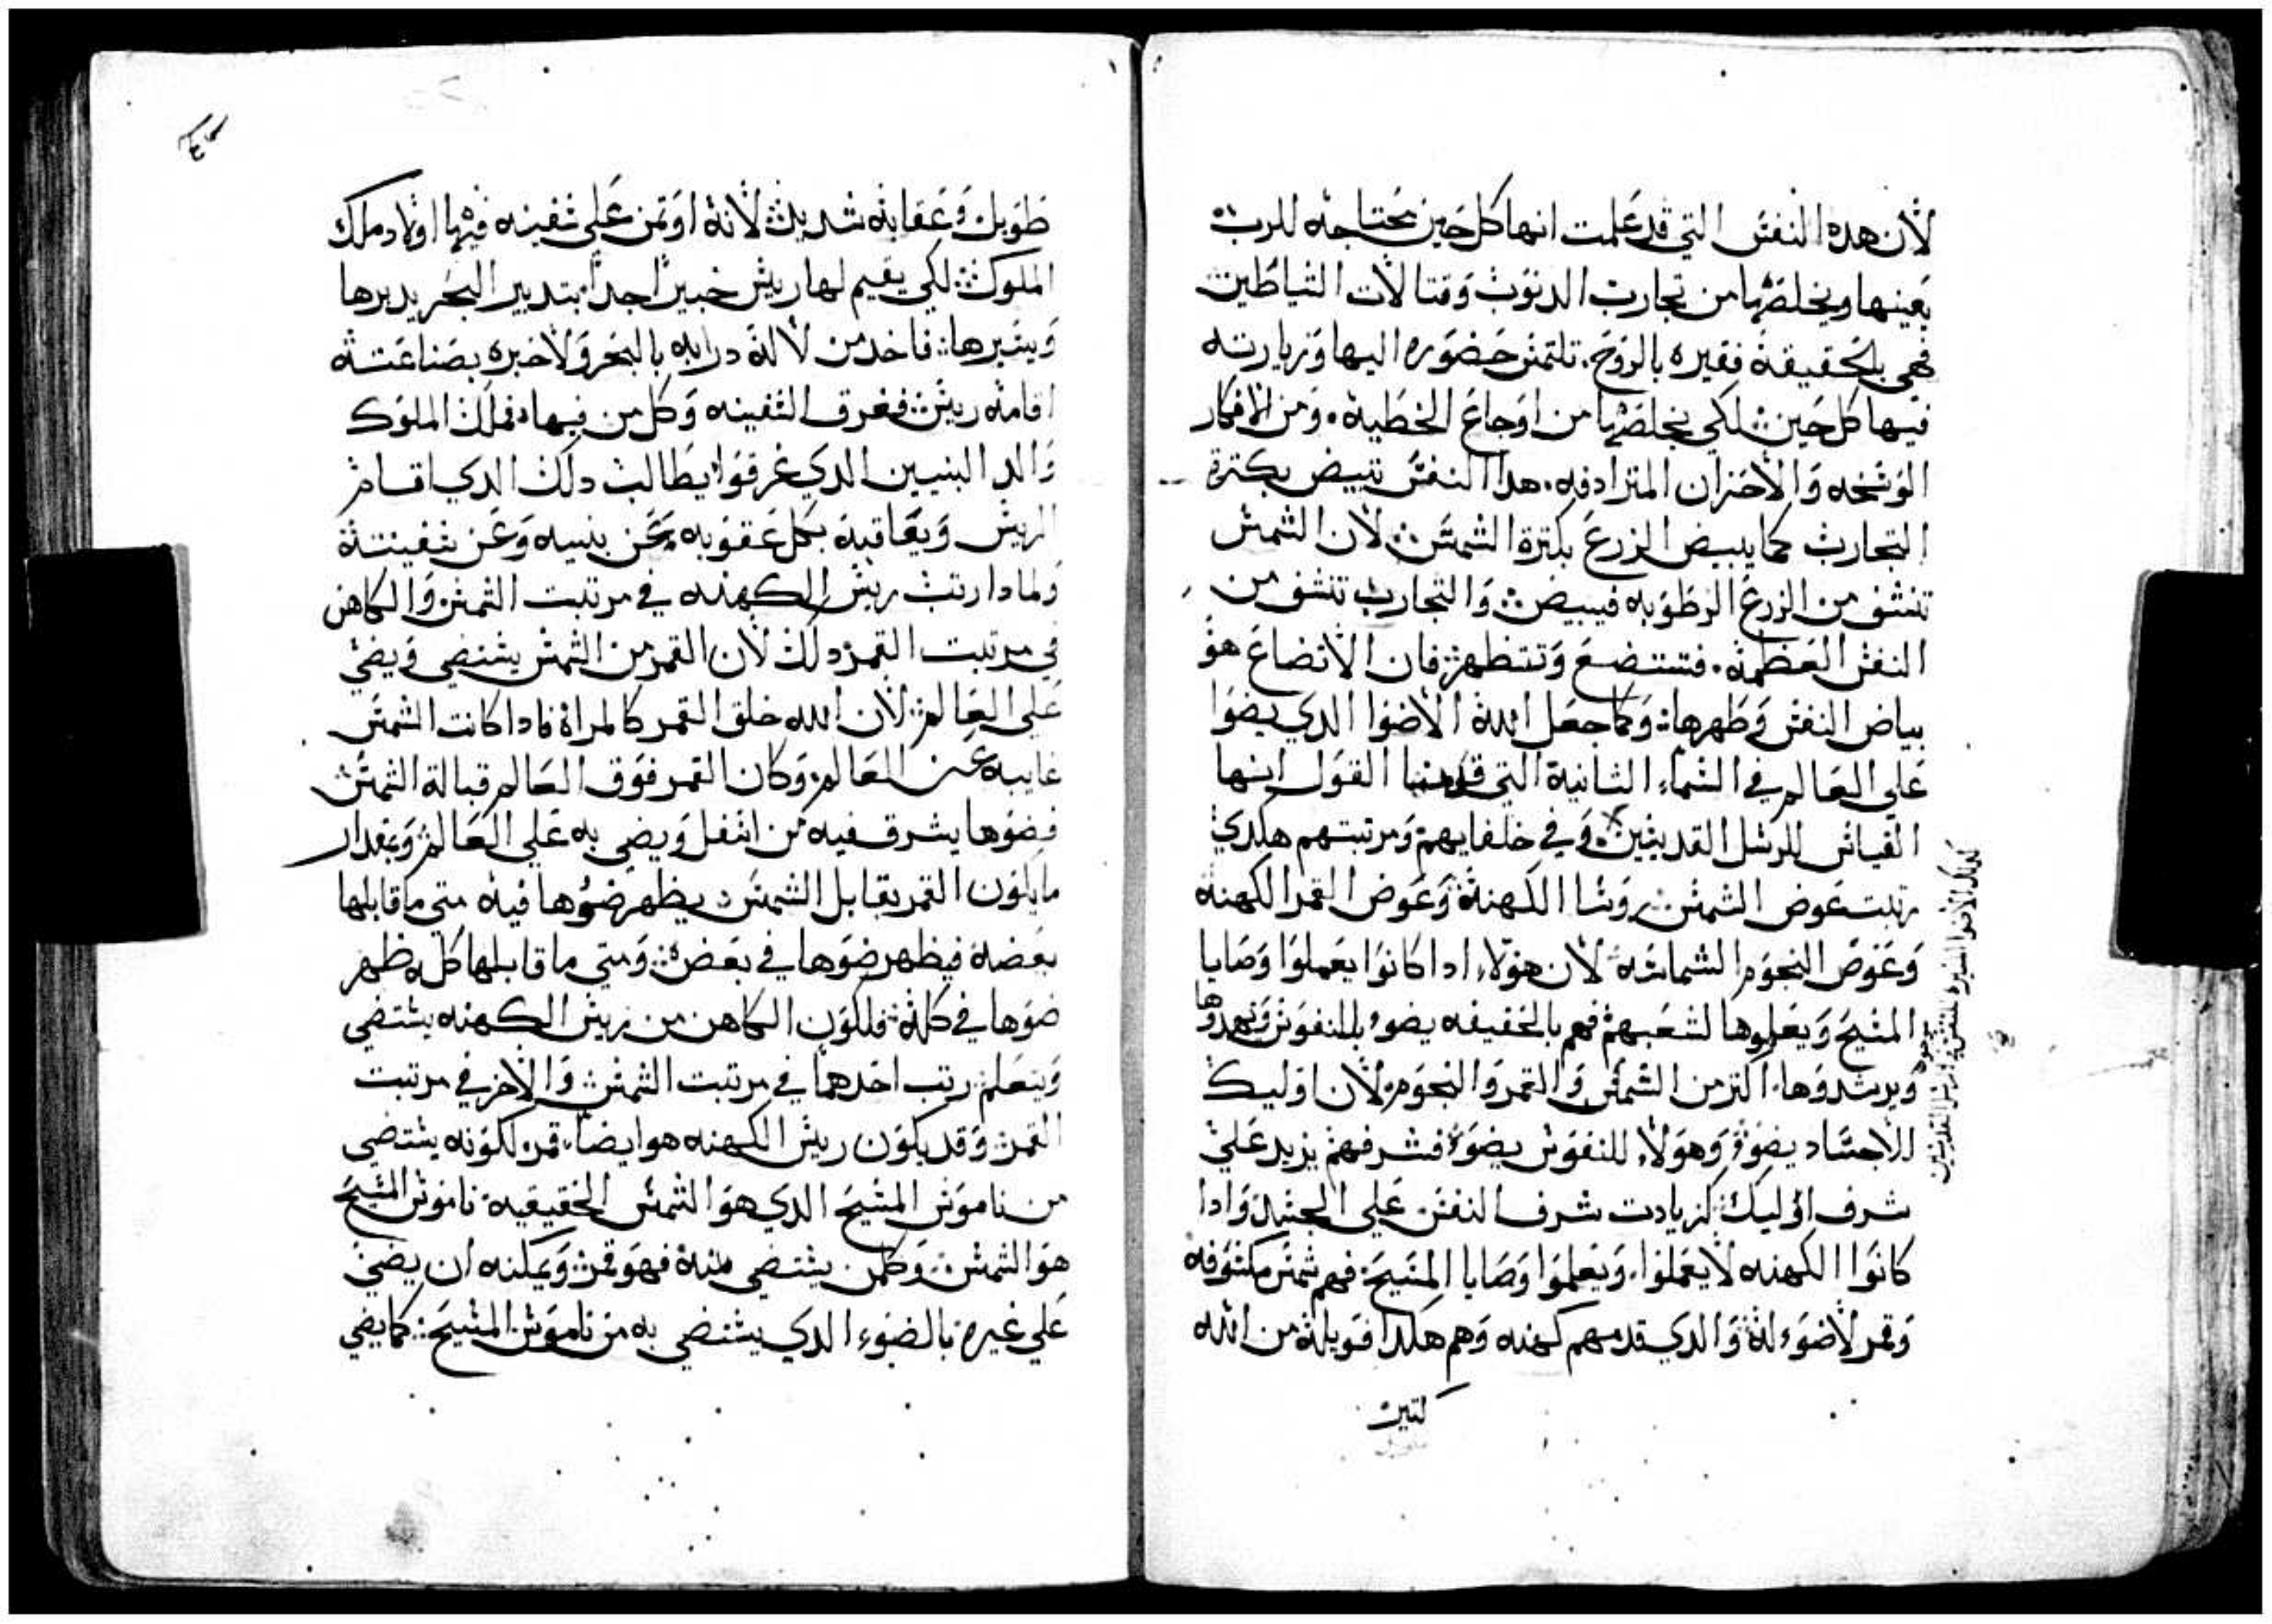 لأن هده النفس التي قد علمت انها كل حين محتاجه للرب
يعينها ويخلصها من تجارب الدنوب وقتالات الشياطين
فهي بالحقيقة فقيره بالروح. تلتمس حضوره اليها وزيارته
فيها كل حين لكي يخلصها من اوجاع الخطية. ومن الافكار
الوسخه والأحزان المترادفه. هدا النفس تبيض بكترة
التجارب كما يبيض الزرع بكترة الشمس لأن الشمس
تنشف من الزرع الرطوبه فيبيض والتجارب تنشف من
النفس العظمه. فتتضع وتتطهر فان الأتضاع هو
بياض النفس وطهرها وكما جعل الله الأضوا الدي يضوا
علي العالم في السماء الثانية التي القول انها
القياس للرسل القديسين وفي خلفايهم ومرتبتهم هكدي
رتبت عوض الشمس روسا الكهنة وعوض القمر الكهنة
وعوض النجوم الشمامسه لأن هولاء ادا كانوا يعملوا وصايا
المسيح ويعلموها لشعبهم فهم بالحقيقه يضوء للنفوس ويهدوها
ويرشدوها. اكتر من الشمس والقمر والنجوم لأن اوليك
للأجساد يضوء وهولاء للنفوس يضوء فشرفهم يزيد علي
شرف اوليك كزيادت شرف النفس علي الجسد وادا
كانوا الكهنه لا يعملوا. ويعلموا وصايا المسيح فهم شمس مكسوفه
وقمر لاضوء له والدي قدمهم كهنه وهم هكدا فويله من الله
كدلك الأضوا للنفس القديسين
طويل وعقابه شديد لأنه اوتمن علي سفينه فيها اولاد ملك
الملوك لكي يقيم لها ريس خبيراً جداً بتدبير البحر يدبرها
ويسيرها فاخد من لا له درايه بالبحر ولا خبره بصناعته
اقامه ريس فغرق السفينه وكل من فيها فملك الملوك
والد البنيين الدي غرقوا يطالب دلك الدي اقام
الريس ويعاقبه بكل عقوبه عن بنيه وعن سفينته
ولمادا رتب ريس الكهنه في مرتبت الشمس والكاهن
في مرتبت القمر دلك لأن القمر من الشمس يستضي ويضي
علي العالم لأن الله خلق القمر كالمراة فادا كانت الشمس
غايبه عن العالم وكان القمر فوق العالم قبالة الشمس
فضوها يشرق فيه من اسفل ويضي به علي العالم وبمقدار
ما يكون القمر يقابل الشمس يظهر ضوها فيه متي ما قابلها
بعضه فيظهر ضوها في بعضه ومتي ما قابلها كله ظهر
ضوها في كله فلكون الكاهن من ريس الكهنه يستضي
ويتعلم رتب احدهما في مرتبت الشمس والاخر في مرتبت
القمر وقد يكون ريس الكهنه هو ايضاً قمر لكونه يستضي
من ناموس المسيح الدي هو الشمس الحقيقيه ناموس المسيح
هو الشمس وكلمن يستضي منه فهو قمر ويمكنه ان يضي
علي غيره بالضوء الدي يستضي به من ناموس المسيح كما يضي